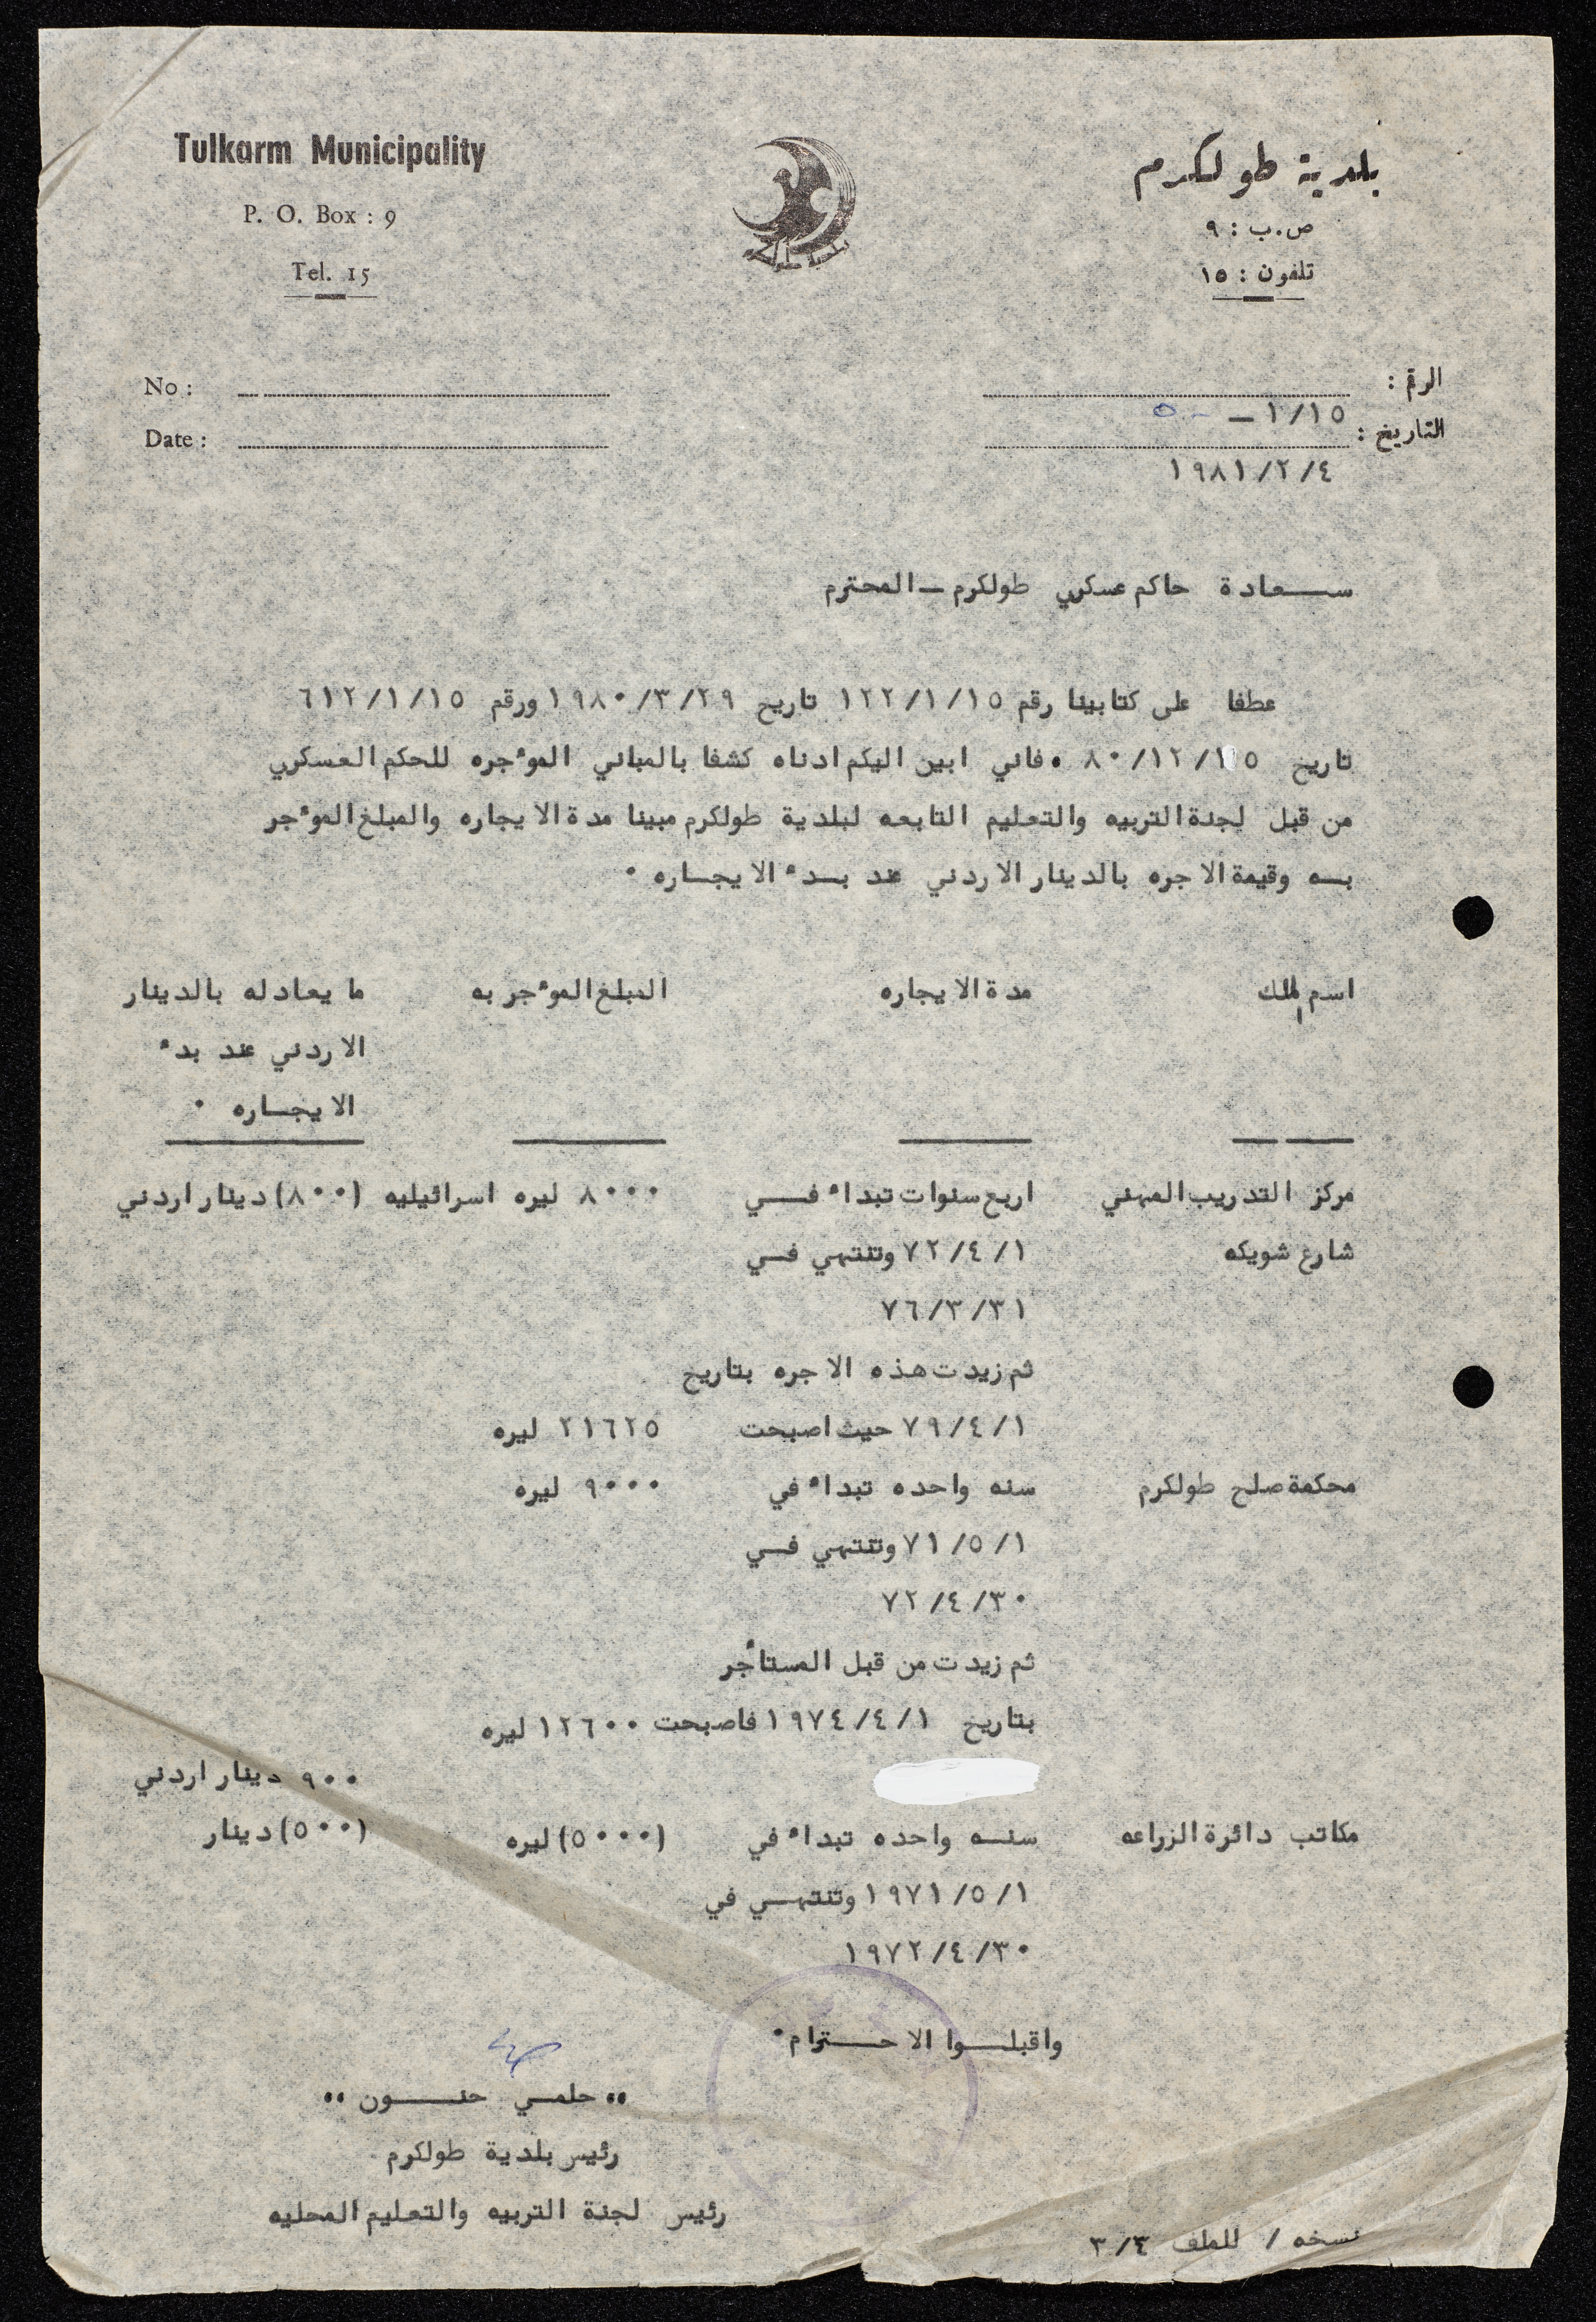 Tulkarm Municipality
P. O. Box : 9
Tel. 15
بلدية طولكرم
ص.ب : ٩
تلفون : ١٥
No :
Date :
الرقم :
١/١٥ — ٥٠
التاريخ :
١٩٨١/٢/٤
ســـعادة حاكم عسكري طولكرم – المحترم
عطفا على كتابينا رقم ١٢٢/١/١٥ تاريخ ١٩٨٠/٣/٢٩ ورقم ٦١٢/١/١٥
تاريخ ٨٠/١٢/١٥ ٠ فاني ابين اليكم ادناه كشفا بالمباني الموءجره للحكم العسكري
من قبل لجنة التربيه والتعليم التابعه لبلدية طولكرم مبينا مدة الايجاره والمبلغ الموءجر
بــه وقيمة الاجره بالدينار الاردني عند بــدء الايجــاره ٠
اسم الملك مدة الايجاره المبلغ الموءجر به ما يعادله بالدينار
الاردني عند بدء
الايجــاره ٠
مركز التدريب المهني اربع سنوات تبداء فــــي ٨٠٠٠ ليره اسرائيليه (٨٠٠) دينار اردني
شارع شويكه ٧٢/٤/١ وتنتهي فــي
٧٦/٣/٣١
ثم زيدت هذه الاجره بتاريخ
٧٩/٤/١ حيث اصبحت ٢١٦٢٥ ليره
محكمة صلح طولكرم سنه واحده تبداء في ٩٠٠٠ ليره
٧١/٥/١ وتنتهي فــي
٧٢/٤/٣٠
ثم زيدت من قبل المستأجر
بتاريخ ١٩٧٤/٤/١ فاصبحت ١٢٦٠٠ ليره
٩٠٠ دينار اردني
مكاتب دائرة الزراعه سنــه واحده تبداء في (٥٠٠٠) ليره (٥٠٠) دينار
١٩٧١/٥/١ وتنتهــي في
١٩٧٢/٤/٣٠
واقبلـــوا الاحـــترام ٠
٠٠ حلمــي حنـــــون ٠٠
رئيس بلدية طولكرم
رئيس لجنة التربيه والتعليم المحليه
نسخه / للملف ٣/٤